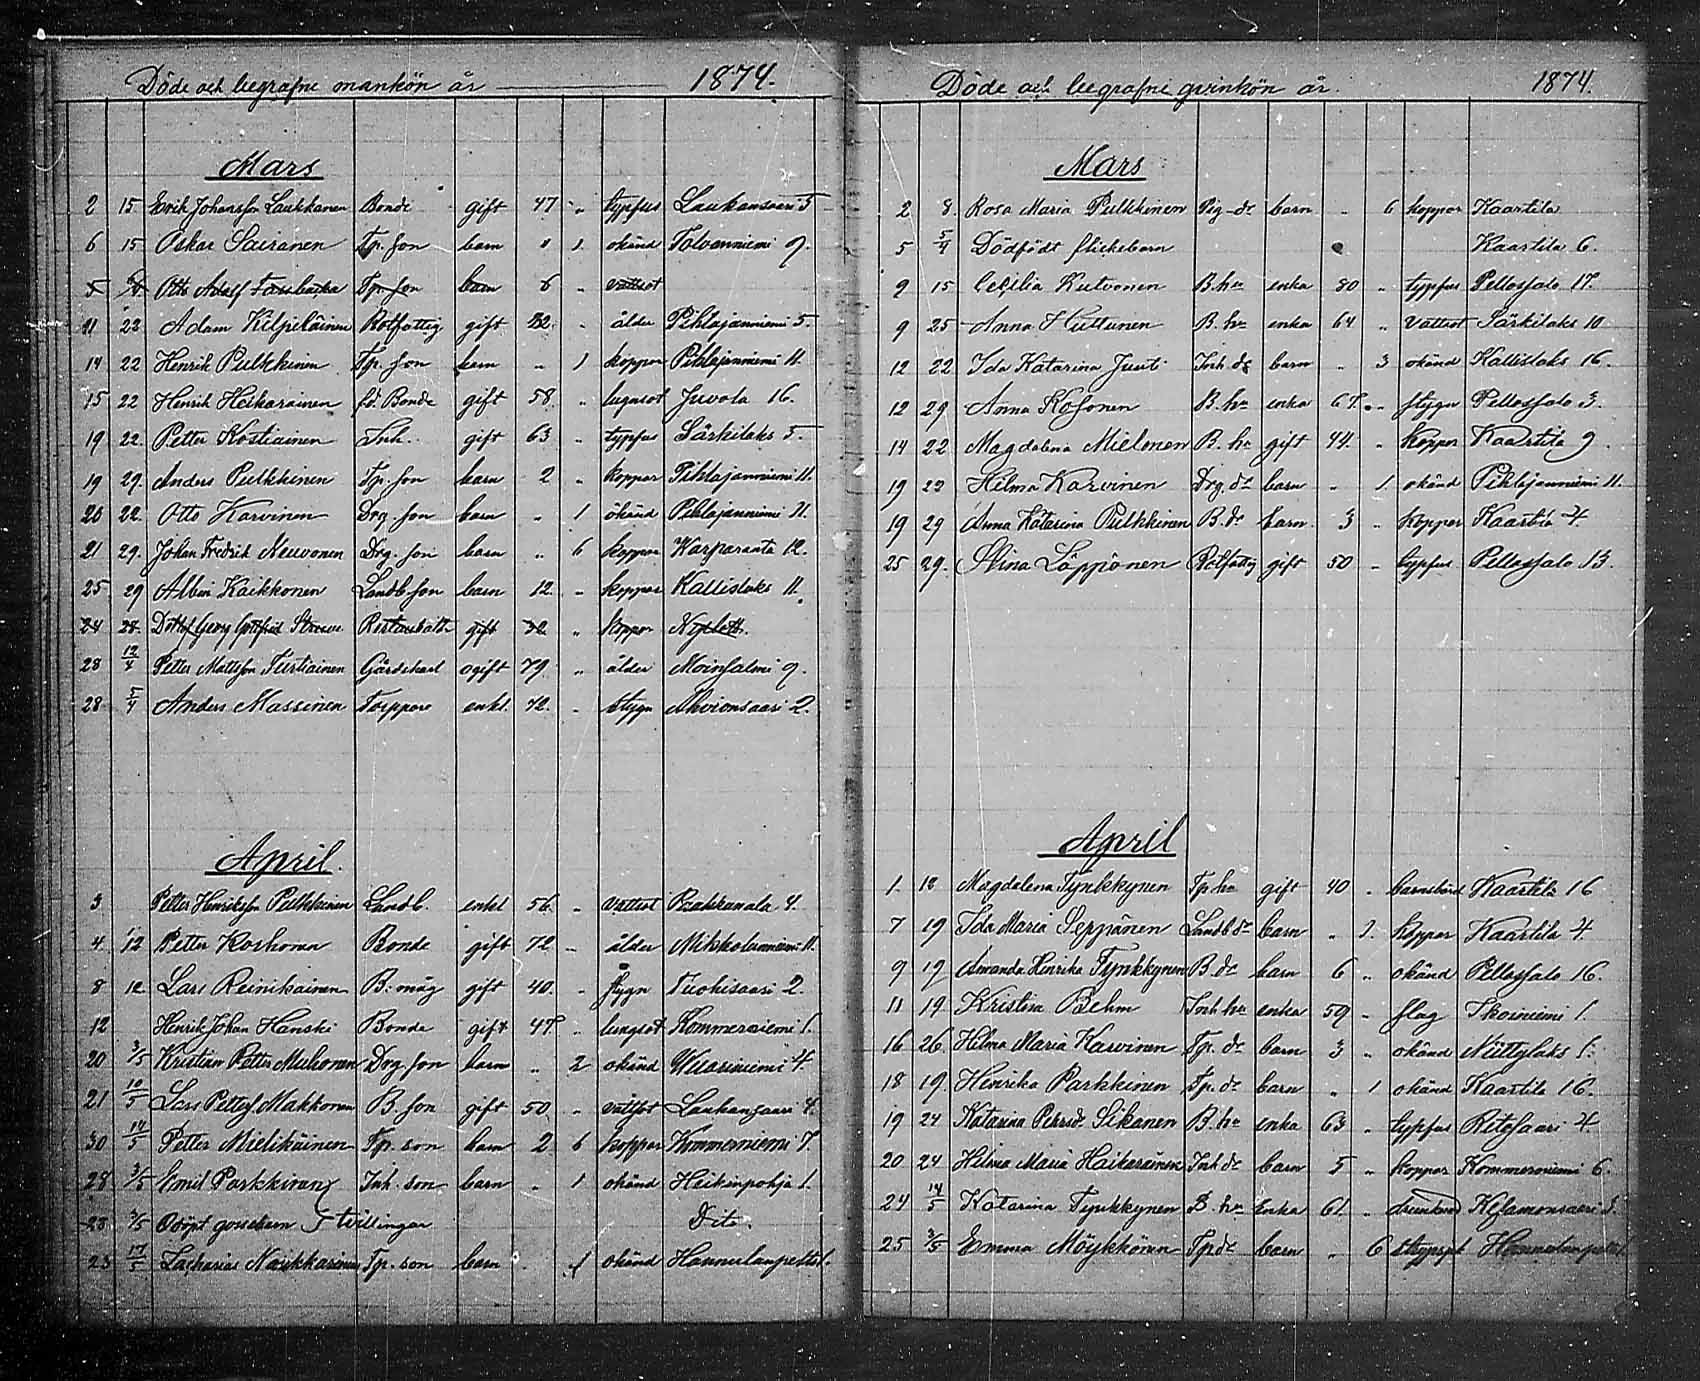 Döde och begrafne mankön år 1874.
Mars
2 15 Erik Johansson Laukkanen Bonde gift 47 " typfus Laukansaari 5
6 15 Oskar Sairanen Tp. son barn " 1 okänd Tolvanniemi 9.
5 Otto Adolf Tp. son barn 6 " vattsot
11 22 Adam Kilpeläinen Rotfattig gift " ålder Pihlajaniemi 5.
14 22 Henrik Pulkkinen Tp. son barn " 1 koppor Pihlajaniemi 11.
15 22 Henrik Heikarainen fd. Bonde gift 58. " lugnsot Juvola 16.
19 22. Petter Kostiainen Inh. gift 63 " typfus Särkilaks 5.
19 29. Anders Pulkkinen Tp. son barn 2 " koppor Pihlajanniemi 11.
20 22. Otto Karvinen Drg. son barn " 1 okänd Pihlajanniemi 11.
21 29. Johan Fredrik Neuvonen Drg. son barn " 6 koppor Karparanta 12.
25 29 Albin Kaikkonen Landb. son barn 12. " koppor Kallislaks 11.
24 28. Detlof Georg Gottfried Struwe gift 32 " koppor Nyslott.
28 12/4 Petter Mattsson Turtiainen Gårdskarl ogift 79. " ålder Moinsalmi 9.
28 5/4 Anders Massinen Torppare enkl. 72. " stygn Ahvionsaari 2.
April.
3 Petter Henriksson Pulkkinen Landb. enkl 56. " vattsot Raikkanala 4.
4. 12 Petter Korhonen Bonde gift 72 " ålder Mikkolanniemi 11.
8 12. Lars Reinikainen B. måg gift 40. " stygn Tuohisaari 2.
12 Henrik Johan Hanski Bonde gift 47. " lungsot Kommerniemi 1.
20 3/5 Kristian Petter Muhonen Drg. son barn " 2 okänd 4.
21 10/5 Lars Petter Makkonen B. son gift 50 " vattsot Laukansaari 4.
30 14/5 Petter Mielikäinen Tp. son barn 2 6 koppor Kommerniemi 7.
28 3/5 Emil Parkkinen Inh. son barn " 1 okänd Heikinpohja 1.
28 3/5 Odöpt gossebarn } tvillingar Dito.
23 17/5 Zacharias Naukkarinen Tp. son barn . 1 okänd Hannolanpelto 1.
Döde och begrafne qvinkön år. 1874.
Mars
2 8. Rosa Maria Pulkkinen Pig-dr barn " 6 koppor Kaartila
5 5/4 Dödfödt flickebarn Kaartila 6.
9 15 Cecilia Kutvonen B. hu enka 80 " typfus Pellossalo 17.
9 25 Anna Huttunen B. hu enka 64 " vattsot Särkilaks 10
12 22 Ida Katarina Junti Inh. dr barn " 3 okänd Kallislaks 16.
12 29 Anna Kosonen B. hu enka 67. " stygn Pellossalo 3.
14 22 Magdalena Mielonen B. hu gift 44. " koppor Kaartila 9.
19 22 Hilma Karvinen Drg. dr barn " 1 okänd Pihlajanniemi 11.
19 29 Anna Katarina Pulkkinen B. dr barn 3 " koppor Kaartila 4.
25 29. Stina Löppönen Rotfattig gift 50 " typfus Pellossalo 13.
April
1. 12 Magdalena Tynkkynen Tp. hu gift 40 " barnsbörd Kaartila 16
7 19 Ida Maria Seppänen Landb. dr barn " 1. koppor Kaartila 4.
9 19 Amanda Henrika Tynkkynen B. dr barn 6 " okänd Pellossalo 16.
11 19 Kristina Behm Inh. hu enka 59 " slag Ikoiniemi 1.
16 26. Hilma Maria Karvinen Tp. dr barn 3 " okänd Niittylaks 1.
18 19. Henrika Parkkinen Tp. dr barn " 1 okänd Kaartila 16.
19 24 Katarina Persdr Sikanen B. hu enka 63 " typfus Ritosaari 4.
20 24 Hilma Maria Haikarainen Inh. dr barn 5 " koppor Kommerniemi 6.
24 14/5 Katarina Tynkkynen B. hu enka 61. " drunknad
25 3/5 Emma Möykkönen Tp. dr barn " 6 strypsjuk Hannolanpelto 1.